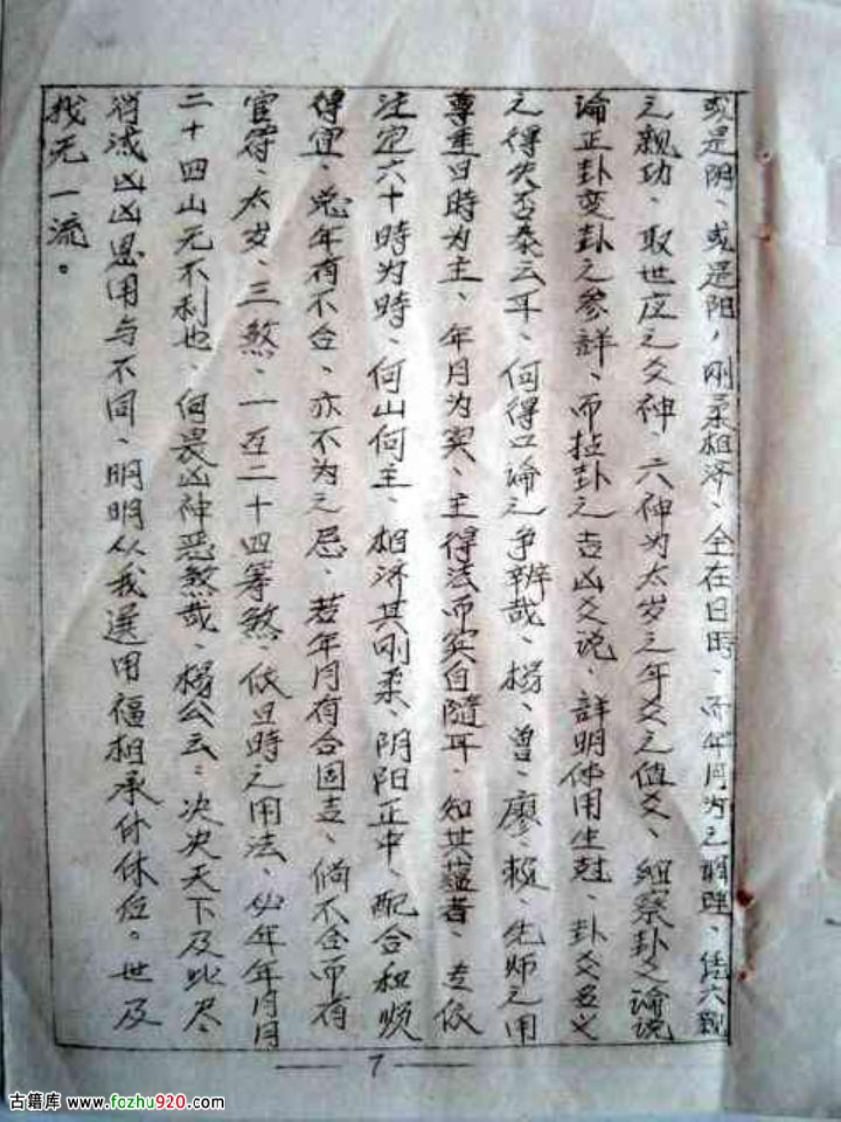 或是阴、或是阳，刚柔相济、全在日时、而年月为之理、凭六亲
之亲功、取世应之爻神、六神为太岁之年爻之值爻、细察卦爻论说
论正卦变卦之参詳、而卦之吉凶爻说、詳明体用生尅、卦爻名义
之得失否泰云耳、何得口论之争辨哉、杨、曾、廖、赖、先师之用
尊重日時为主、年月为宾、主得法而宾自隨耳、知其蕴者、专依
注定六十時为時、何山何主、相济其刚柔、阴阳正中、配合和顺
得宜、总年有不合、亦不为之忌、若年月有合固吉、倘不合而有
官符、太岁、三煞、一百二十四等煞、依日時之用法、必年年月月
二十四山无不利也、何畏凶神恶煞哉、杨公云：决决天下及此尽
消滅凶凶恩用与不同、明明从我選用福相承休休位。世及
找无一流。
7
古籍库 www.fczhu920.com